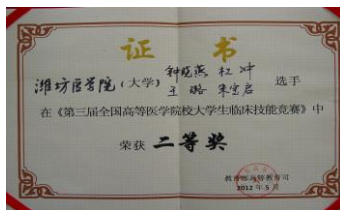 证 书
潍坊医学院（大学）钟晓燕 杜冲
王璐 宋宝启 选手
在《第三届全国高等医学院校大学生临床技能竞赛》中
荣获 二等奖
教育部高等教育司
2012 年 5 月